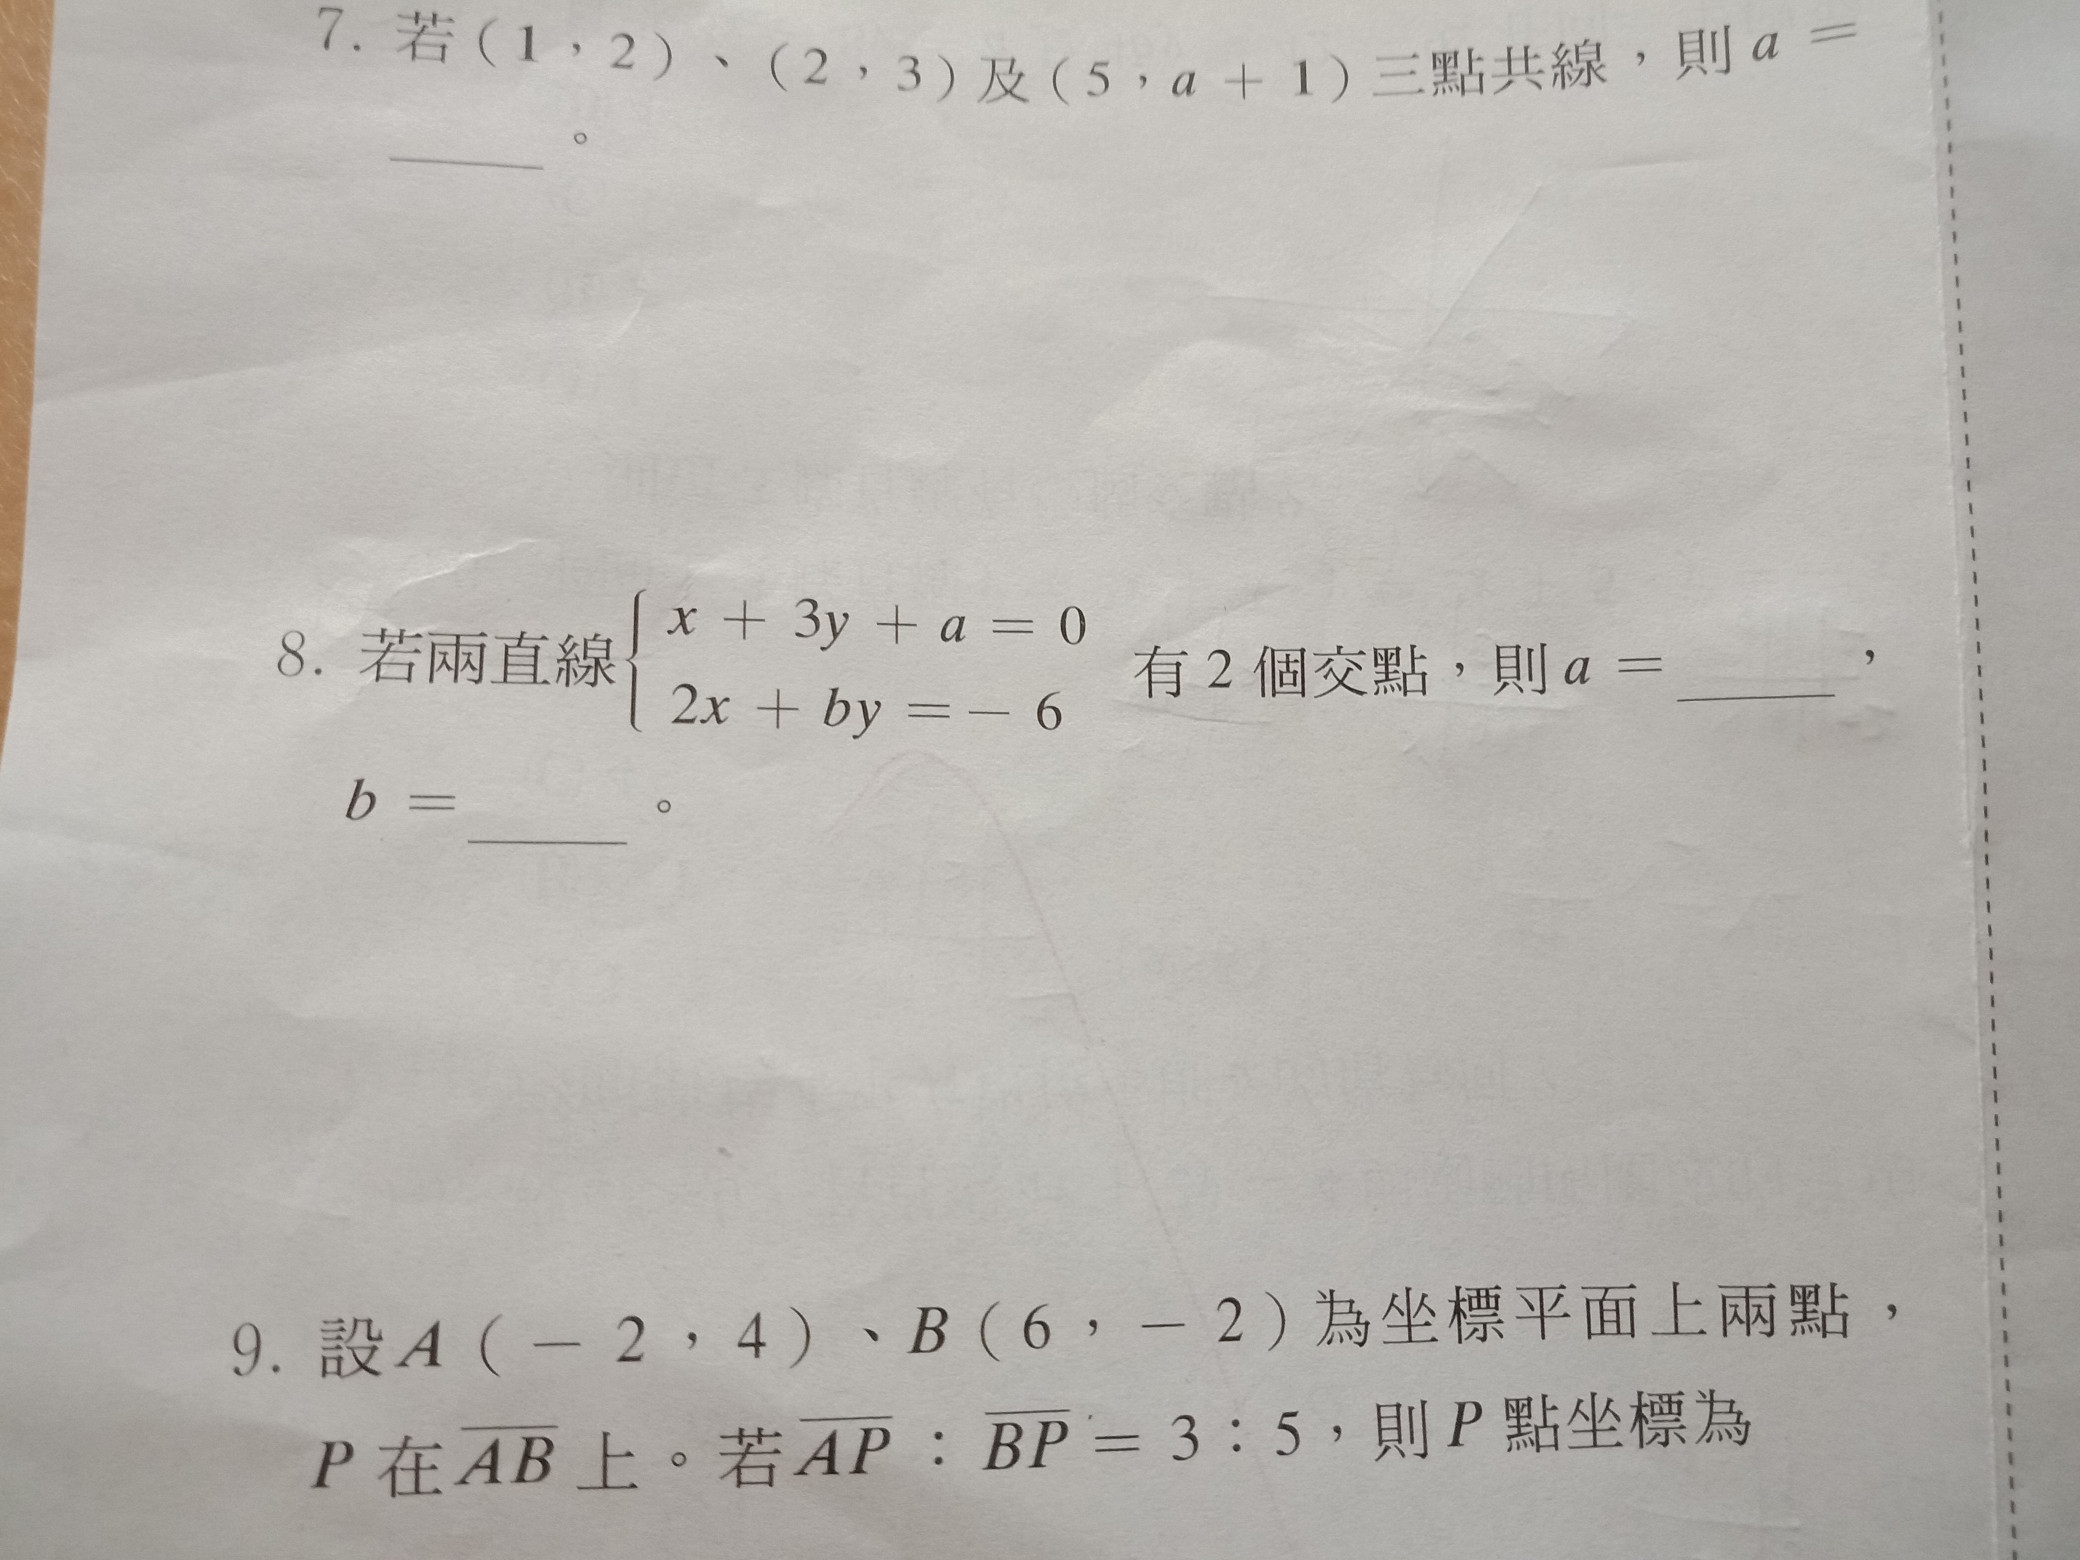 7. 若(1,2)、(2,3)及(5,a+1)三點共線,則a=
____。
8. 若兩直線{ x+3y+a=0
2x+by=-6 有2個交點,則a=____,
b=____。
9. 設A(-2,4)、B(6,-2)為坐標平面上兩點,
P在A̅B̅上。若A̅P̅:B̅P̅=3:5,則P點坐標為